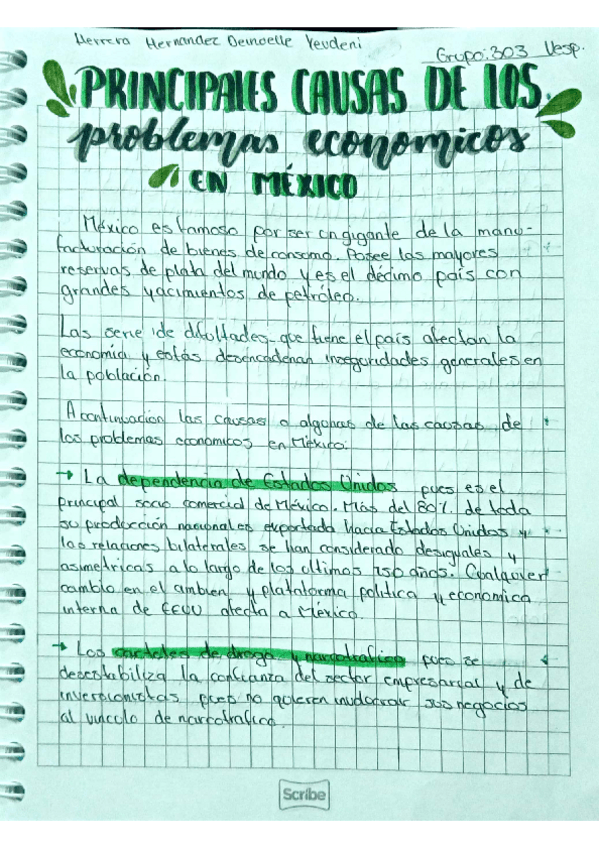 Herrera Hernandez Demoelle Yeudeni
Grupo: 303 Vesp.
PRINCIPALES CAUSAS DE LOS
problemas economicos
EN MÉXICO
México es famoso por ser un gigante de la manu-
facturación de bienes de consumo. Posee las mayores
reservas de plata del mundo y es el décimo país con
grandes yacimientos de petróleo.
Las serie de dificultades que tiene el país afectan la
economía y estás desencadenan inseguridades generales en
la población.
A continuación las causas o algunas de las causas de
los problemas economicos en México:
→ La dependencia de Estados Unidos pues es el
principal socio comercial de México. Más del 80% de toda
su producción nacional es exportada hacia Estados Unidos y
las relaciones bilaterales se han considerado desiguales y
asimetricas a lo largo de los ultimos 150 años. Cualquier
cambio en el ambient y plataforma politica y economica
interna de EEUU afecta a México.
→ Los carteles de droga y narcotrafico pues se
desestabiliza la confianza del sector empresarial y de
inversionistas pues no quieren involucrar sus negocios
al vinculo de narcotrafico.
Scribe